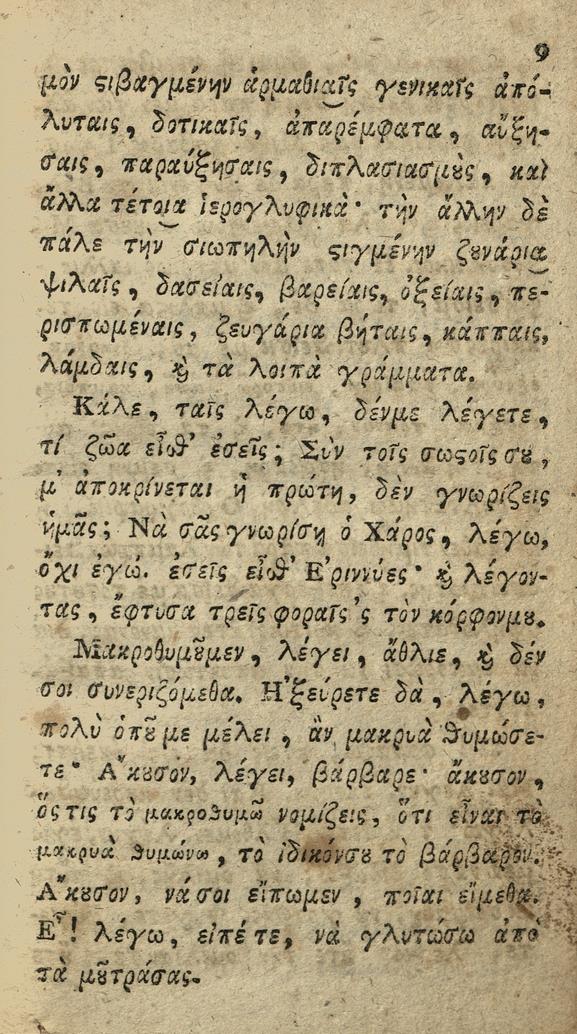 9
μὸν ϛιβαγμένην ἁρμαθιαῖς γενικαῖς ἀπό-
λυταις, δοτικαῖς, ἀπαρέμφατα, αὔξη-
σαις, παραύξησαις, διπλασιασμȣ̀ς, καὶ
ἄλλα τέτοια ἱερογλυφικὰ· τὴν ἄλλην δὲ
πάλε τὴν σιωπηλὴν ϛιγμένην ζȣνάρια
ψιλαῖς, δασείαις, βαρείαις, ὀξείαις, πε-
ρισπωμέναις, ζευγάρια βήταις, κάππαις,
λάμδαις, ϗ τὰ λοιπὰ γράμματα.
Κάλε, ταῖς λέγω, δένμε λέγετε,
τί ζῶα εἶσθ' ἐσεῖς; Σὺν τοῖς σωϛοῖς σȣ,
μ' ἀποκρίνεται ἡ πρώτη, δὲν γνωρίζεις
ἡμᾶς; Νὰ σᾶς γνωρίσῃ ὁ Χάρος, λέγω,
ὄχι ἐγώ. ἐσεῖς εἶσθ' Ἐριννύες· ϗ λέγον-
τας, ἔφτυσα τρεῖς φοραῖς 'ς τὸν κόρφονμȣ.
Μακροθυμȣ͂μεν, λέγει, ἄθλιε, ϗ δέν
σοι συνεριζόμεθα. Ἠξεύρετε δὰ, λέγω,
πολὺ ὁπȣ͂ με μέλει, ἂν μακρυὰ θυμώσε-
τε· Ἄκȣσον, λέγει, βάρβαρε· ἄκȣσον,
ὅς τις τὸ μακροθυμῶ νομίζεις, ὅτι εἶναι τὸ
μακρυὰ θυμώνω, τὸ ἰδικόνσȣ τὸ βάρβαρον.
Ἄκȣσον, νά σοι εἴπωμεν, ποῖαι εἴμεθα.
Ἒ! λέγω, εἰπέ τε, νὰ γλυτώσω ἀπὸ
τὰ μȣ͂τράσας.